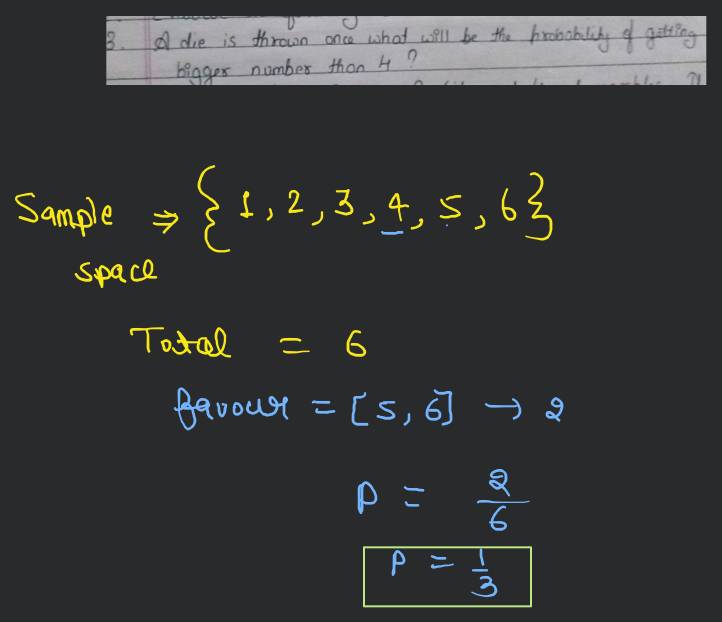 3. A die is thrown once what will be the probability of getting
bigger number than 4 ?
Sample ⇒ {1, 2, 3, 4, 5, 6}
space
Total = 6
favour = [5, 6] → 2
P = 2/6
P = 1/3